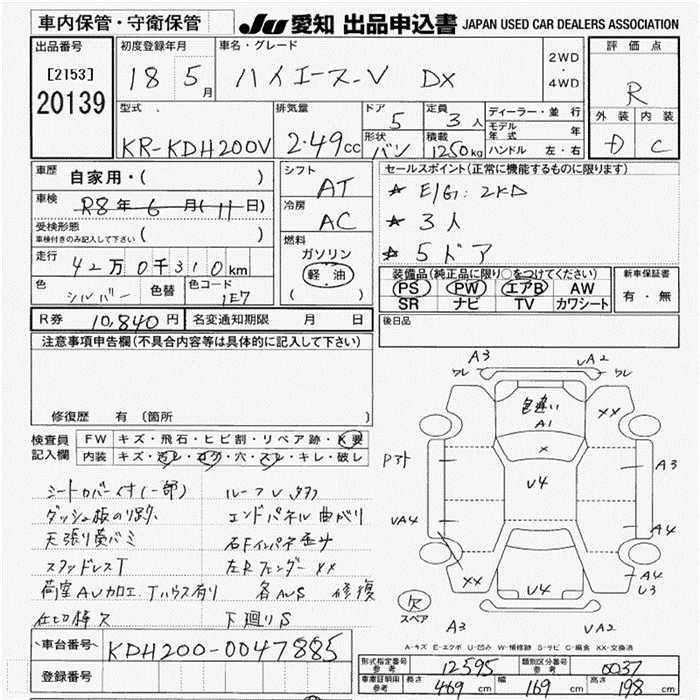 車内保管・守衛保管
JU 愛知 出品申込書 JAPAN USED CAR DEALERS ASSOCIATION
出品番号
[2153]
20139
初度登録年月
18 5月
車名・グレード
ハイエースV DX
2WD
・
4WD
評価点
R
外装 内装
D C
型式
KR-KDH200V
排気量
2.49cc
ドア
5
形状
バン
定員
3人
積載
1250kg
ディーラー・並行
モデル年式 年
ハンドル 左・右
車歴
自家用・( )
車検
R8年6月(11日)
受検形態
車検付きのみ記入して下さい ( )
走行
42万0千310km
色
シルバー
色替
色コード
1E7
シフト
AT
冷房
AC
燃料
ガソリン
軽油
( )
セールスポイント(正常に機能するものに限ります)
★ E/G: 2KD
★ 3人
★ 5ドア
装備品(純正品に限り○をつけてください)
PS PW エアB AW
SR ナビ TV カワシート
新車保証書
有・無
R券 10,840円 名変通知期限 月 日
後日品
注意事項申告欄(不具合内容等は具体的に記入して下さい)
修復歴 有 (箇所 )
検査員記入欄
FW キズ・飛石・ヒビ割・リペア跡・X要
内装 キズ・汚レ・コゲ・穴・スレ・キレ・破レ
シートカバーくす(一部)
ダッシュ板のり跡
天張り黄バミ
スタッドレスT
荷室AV加工、Tハウス有り
仕切棒欠
エンドパネル曲がり
左Rフェンダーxx
修復
下廻りS
A3
ワレ
UA2
ワレ
色違い
A1
XX
×
P外
A3
V4
VA4
A4
XX
V4
A4
U3
欠
スペア
A3
VA2
A-キズ E-エクボ U-凹み W-補修跡 S-サビ C-腐食 XX-交換済
車台番号
KDH200-0047885
登録番号
型式指定番号
参考
12595
類別区分番号
参考
0037
車庫証明用
参考
長さ
469cm
幅
169cm
高さ
198cm